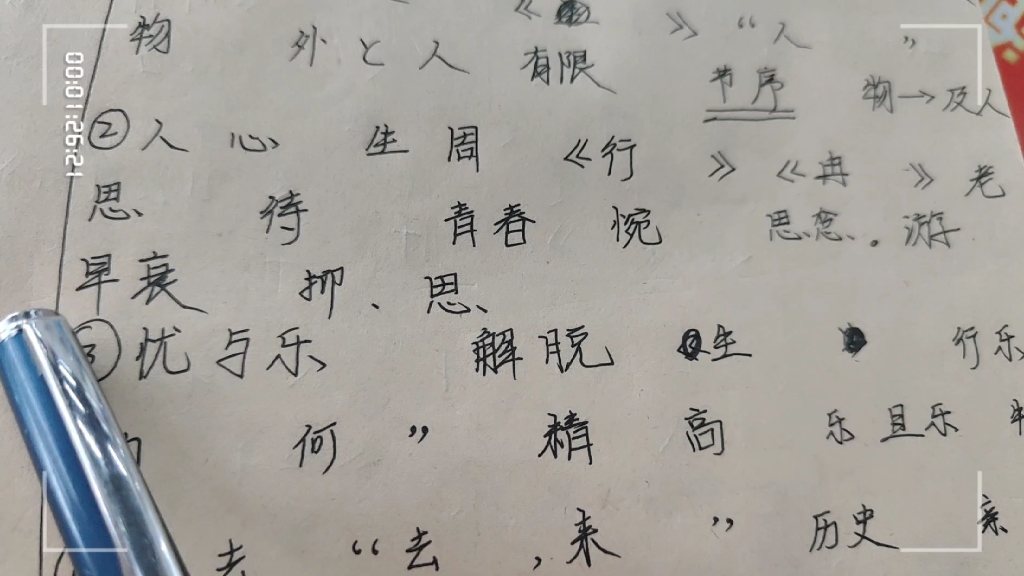 物 外 与 人 《 》 “人 ”
有限 节序 物→及人
②人 心 生 周 《行 》 《冉 》 老
思 待 青春 惋 思念。游
早衰 抑、思
③忧与乐 解脱 生 行乐
何 ” 精 高 乐 且乐
去 “去 ,来 ” 历史 亲
00:01:29:12